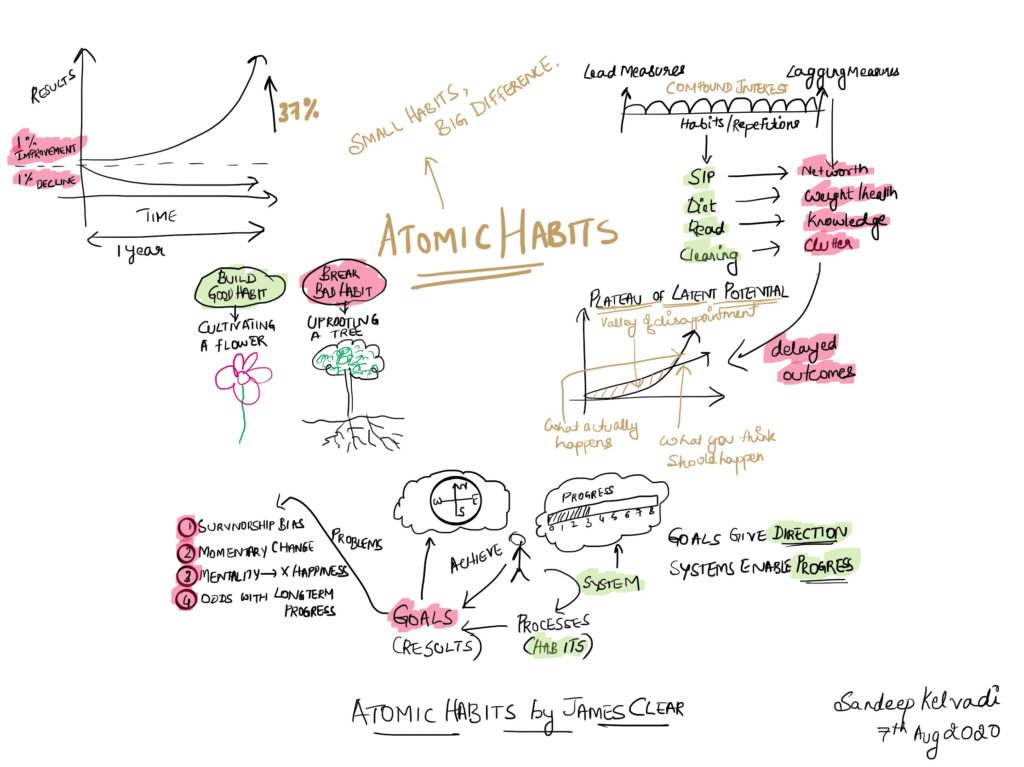 RESULTS
1%
IMPROVEMENT
1% DECLINE
37%
TIME
1 year
SMALL HABITS,
BIG DIFFERENCE.
ATOMIC HABITS
Lead Measures
Lagging Measures
COMPOUND INTEREST
Habits/Repetitions
SIP
Networth
Diet
Weight/health
Read
Knowledge
Cleaning
Clutter
delayed
outcomes
BUILD
GOOD HABIT
CULTIVATING
A FLOWER
BREAK
BAD HABIT
UPROOTING
A TREE
PLATEAU OF LATENT POTENTIAL
Valley of disappointment
What actually
happens
What you think
Should happen
N
W E
S
PROGRESS
0 1 2 3 4 5 6 7 8
ACHIEVE
SYSTEM
PROBLEMS
1 SURVIVORSHIP BIAS
2 MOMENTARY CHANGE
3 MENTALITY → X HAPPINESS
4 ODDS WITH LONGTERM
PROGRESS
GOALS
(RESULTS)
PROCESSES
(HABITS)
GOALS GIVE DIRECTION
SYSTEMS ENABLE PROGRESS
ATOMIC HABITS by JAMES CLEAR
Sandeep Kelvadi
7th Aug 2020